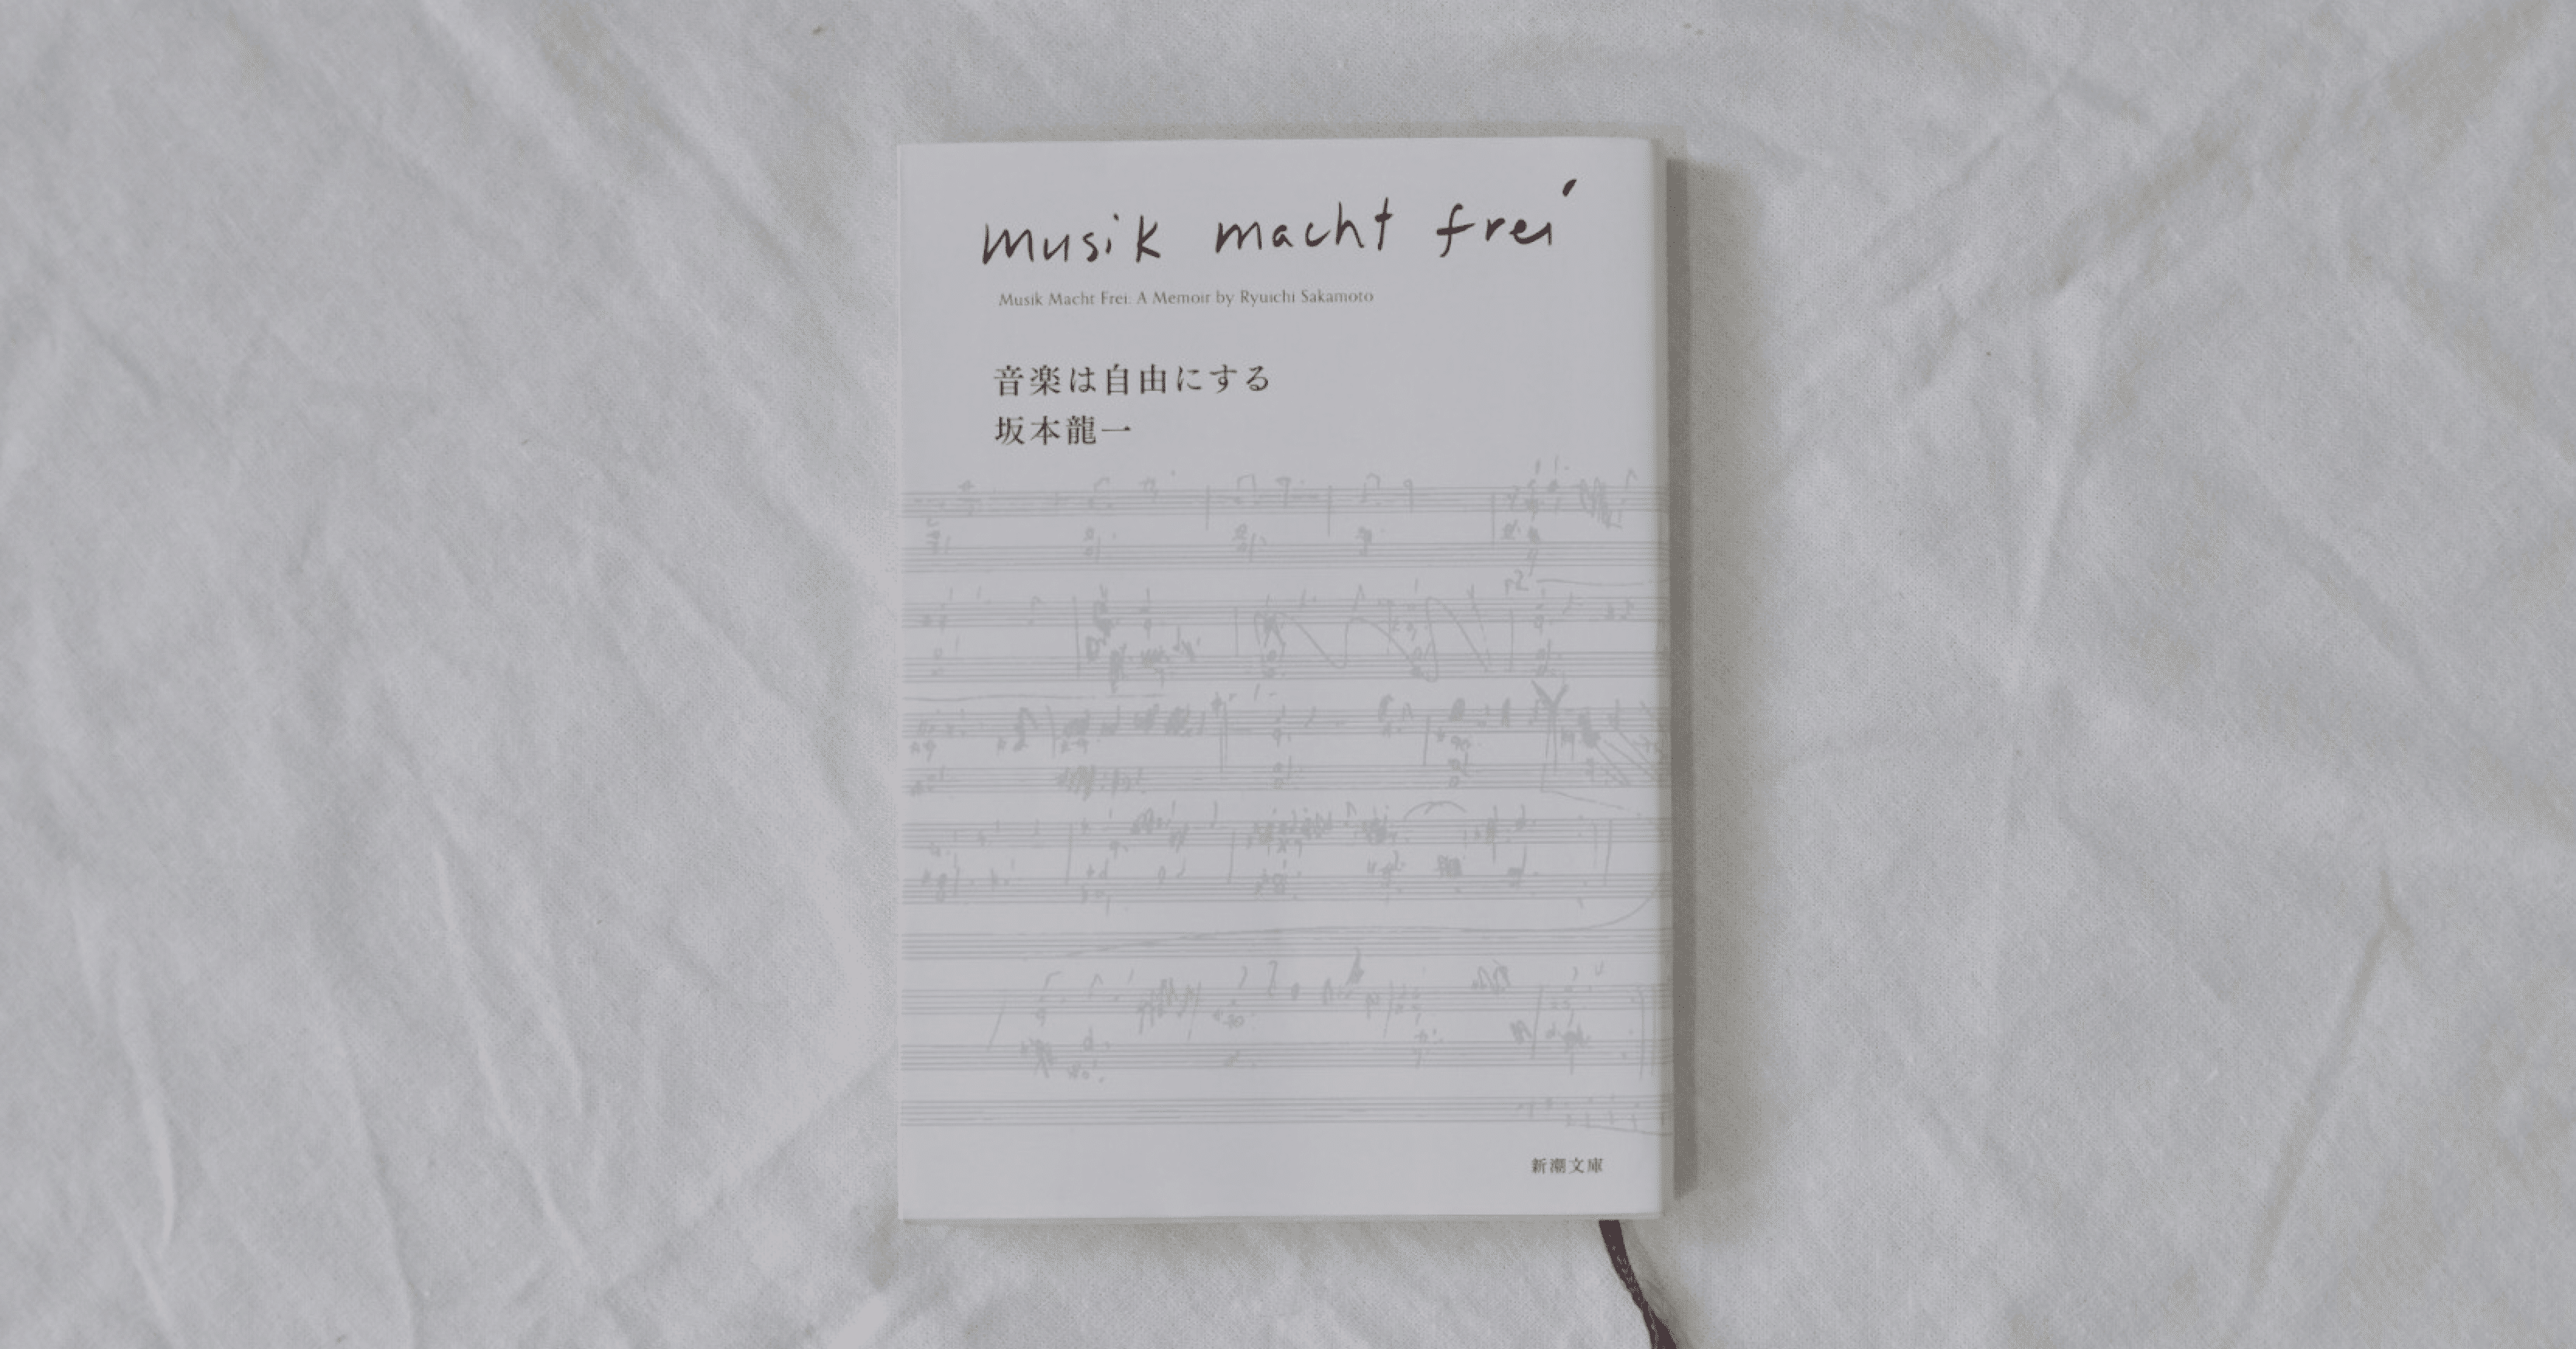 musik macht frei
Musik Macht Frei: A Memoir by Ryuichi Sakamoto
音楽は自由にする
坂本龍一
新潮文庫